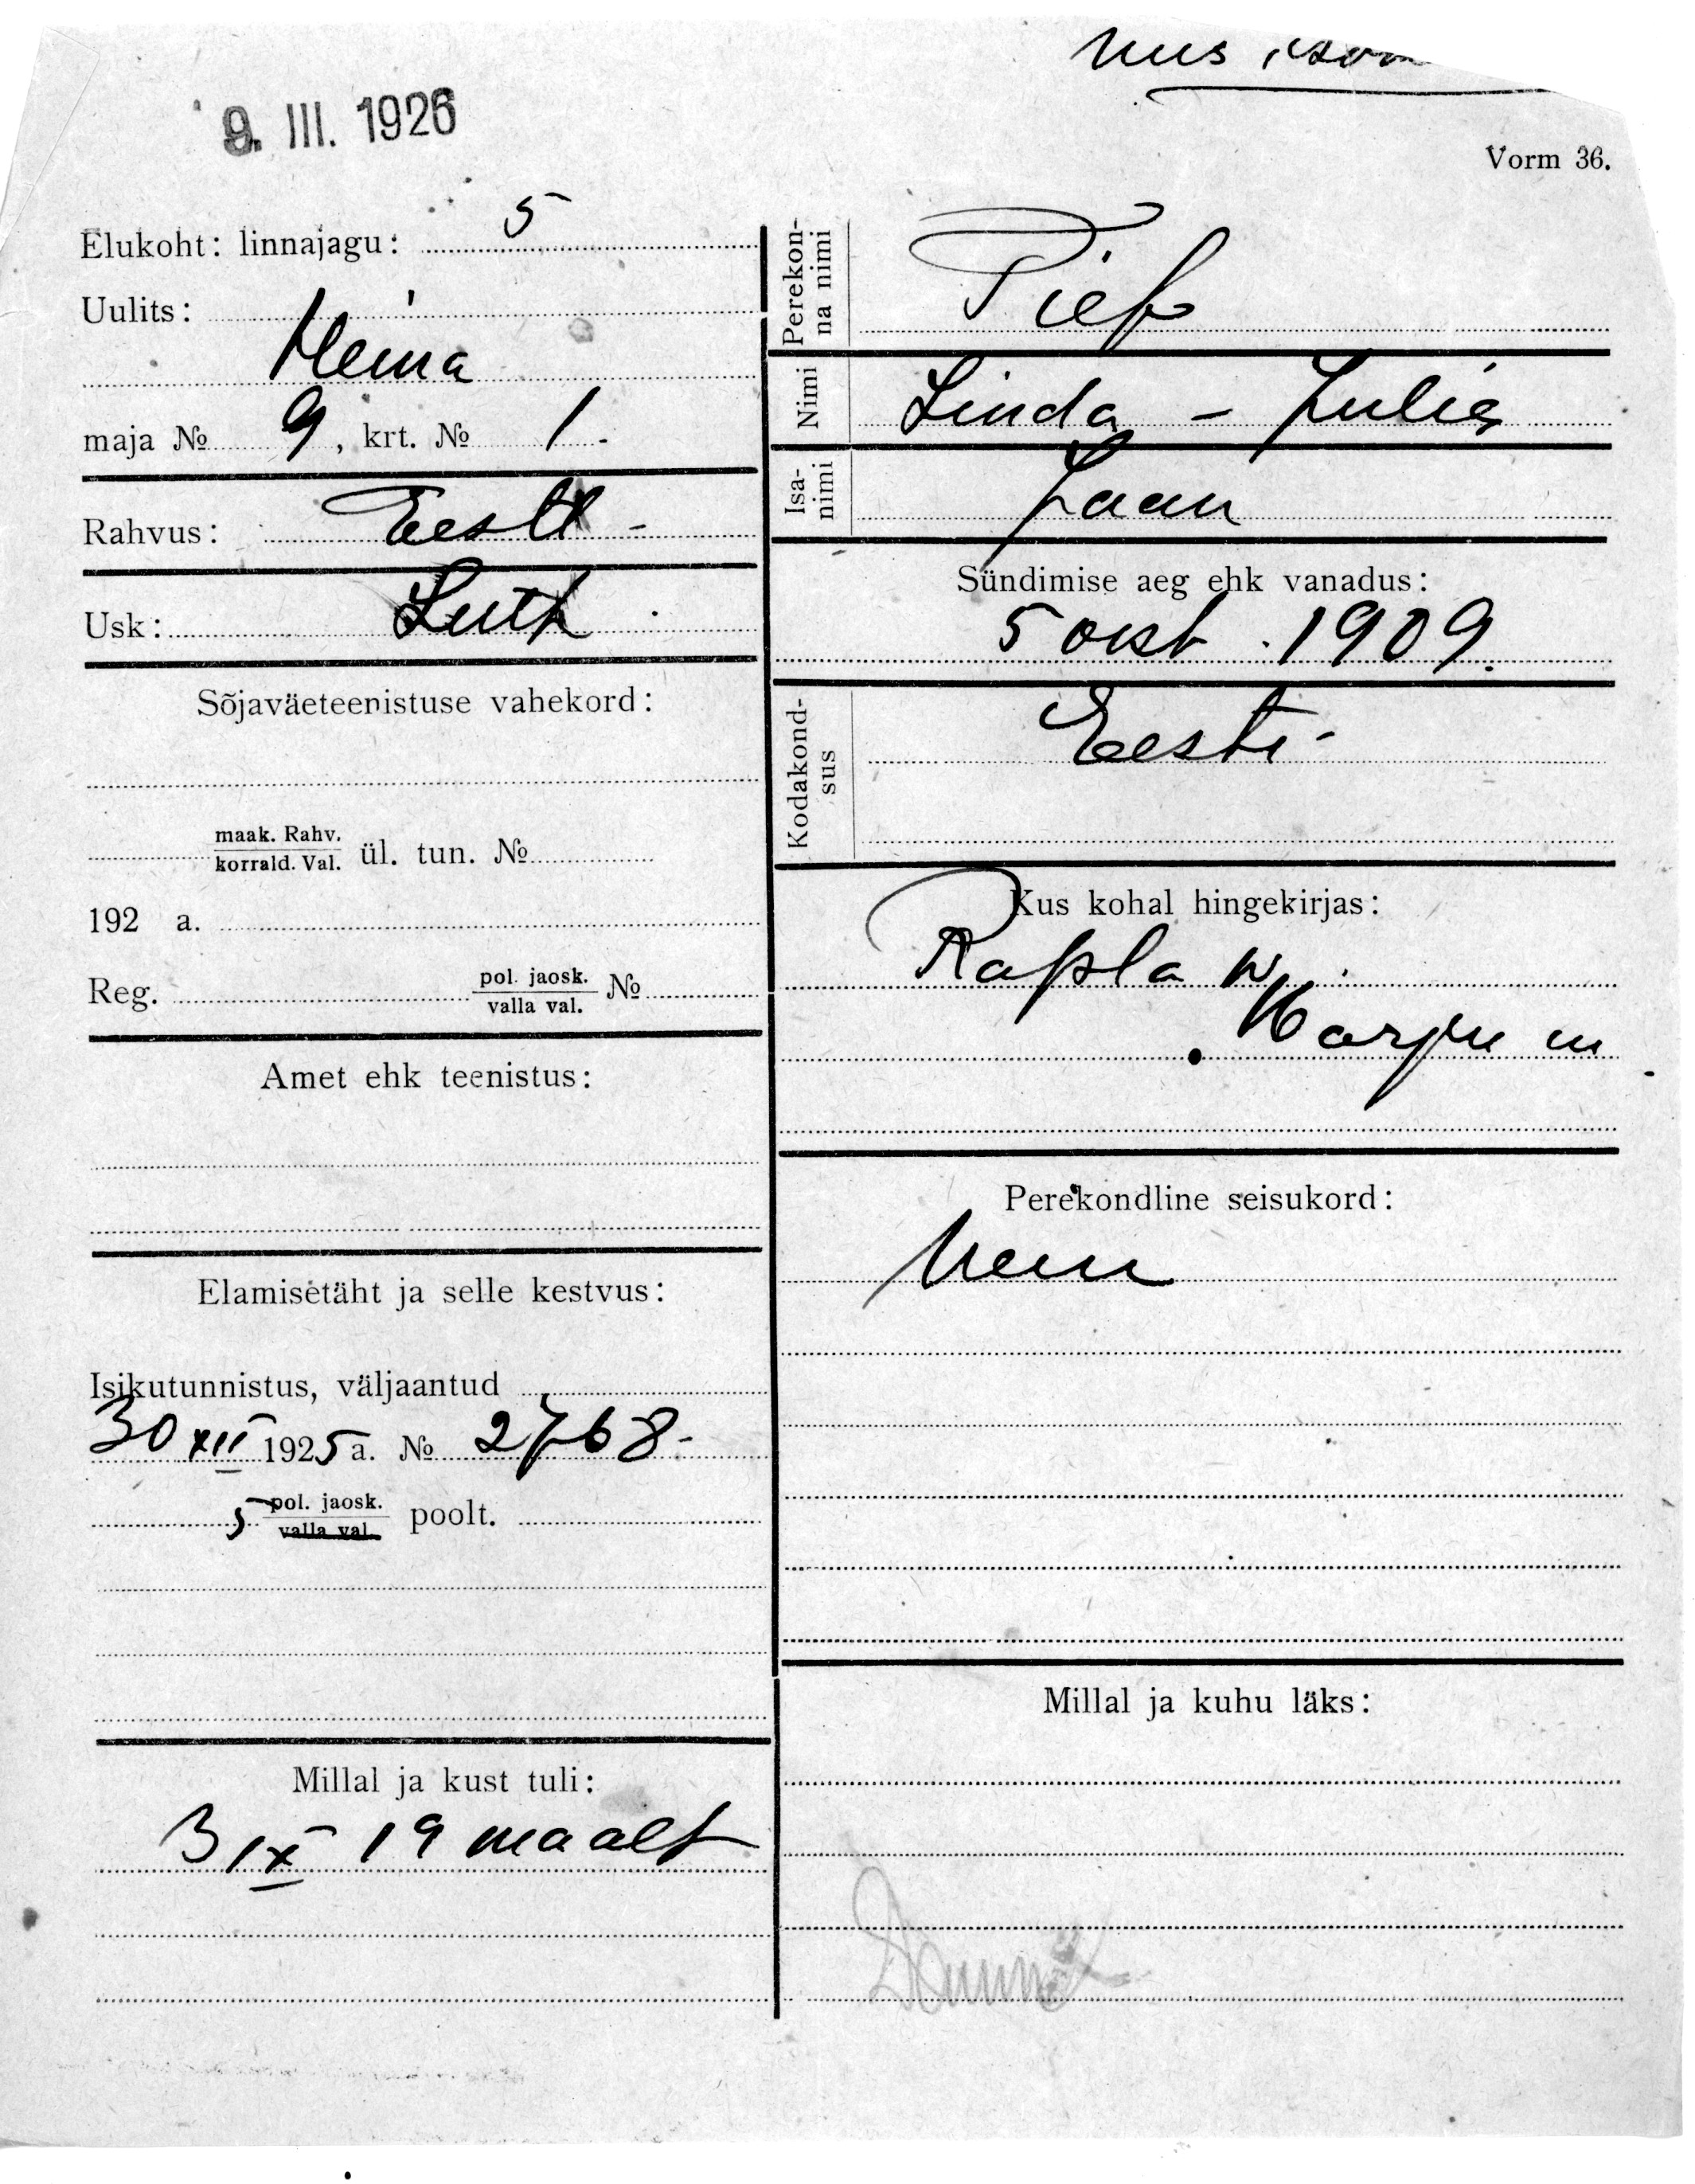 9. III. 1926
Vorm 36.
Elukoht: linnajagu: 5
Uulits:
Heina
maja № 9, krt. № 1.
Rahvus: Eesti -
Usk: Luth.
Sõjaväeteenistuse vahekord:
maak. Rahv.
korrald. Val. ül. tun. №
192 a.
Reg. pol. jaosk.
valla val. №
Amet ehk teenistus:
Elamisetäht ja selle kestvus:
Isikutunnistus, väljaantud
30 XII 1925 a. № 2768-
5 pol. jaosk.
valla val. poolt.
Millal ja kust tuli:
3 IX 19 maalt
Perekon-
na nimi
Nimi Linda - Julie
Isa-
nimi Jaan
Sündimise aeg ehk vanadus:
5 okt. 1909.
Kodakond-
sus Eesti-
Kus kohal hingekirjas:
Rapla w.
Harju m
Perekondline seisukord:
Millal ja kuhu läks: